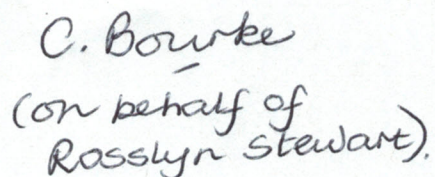 C. Bourke
(on behalf of
Rosslyn Stewart).